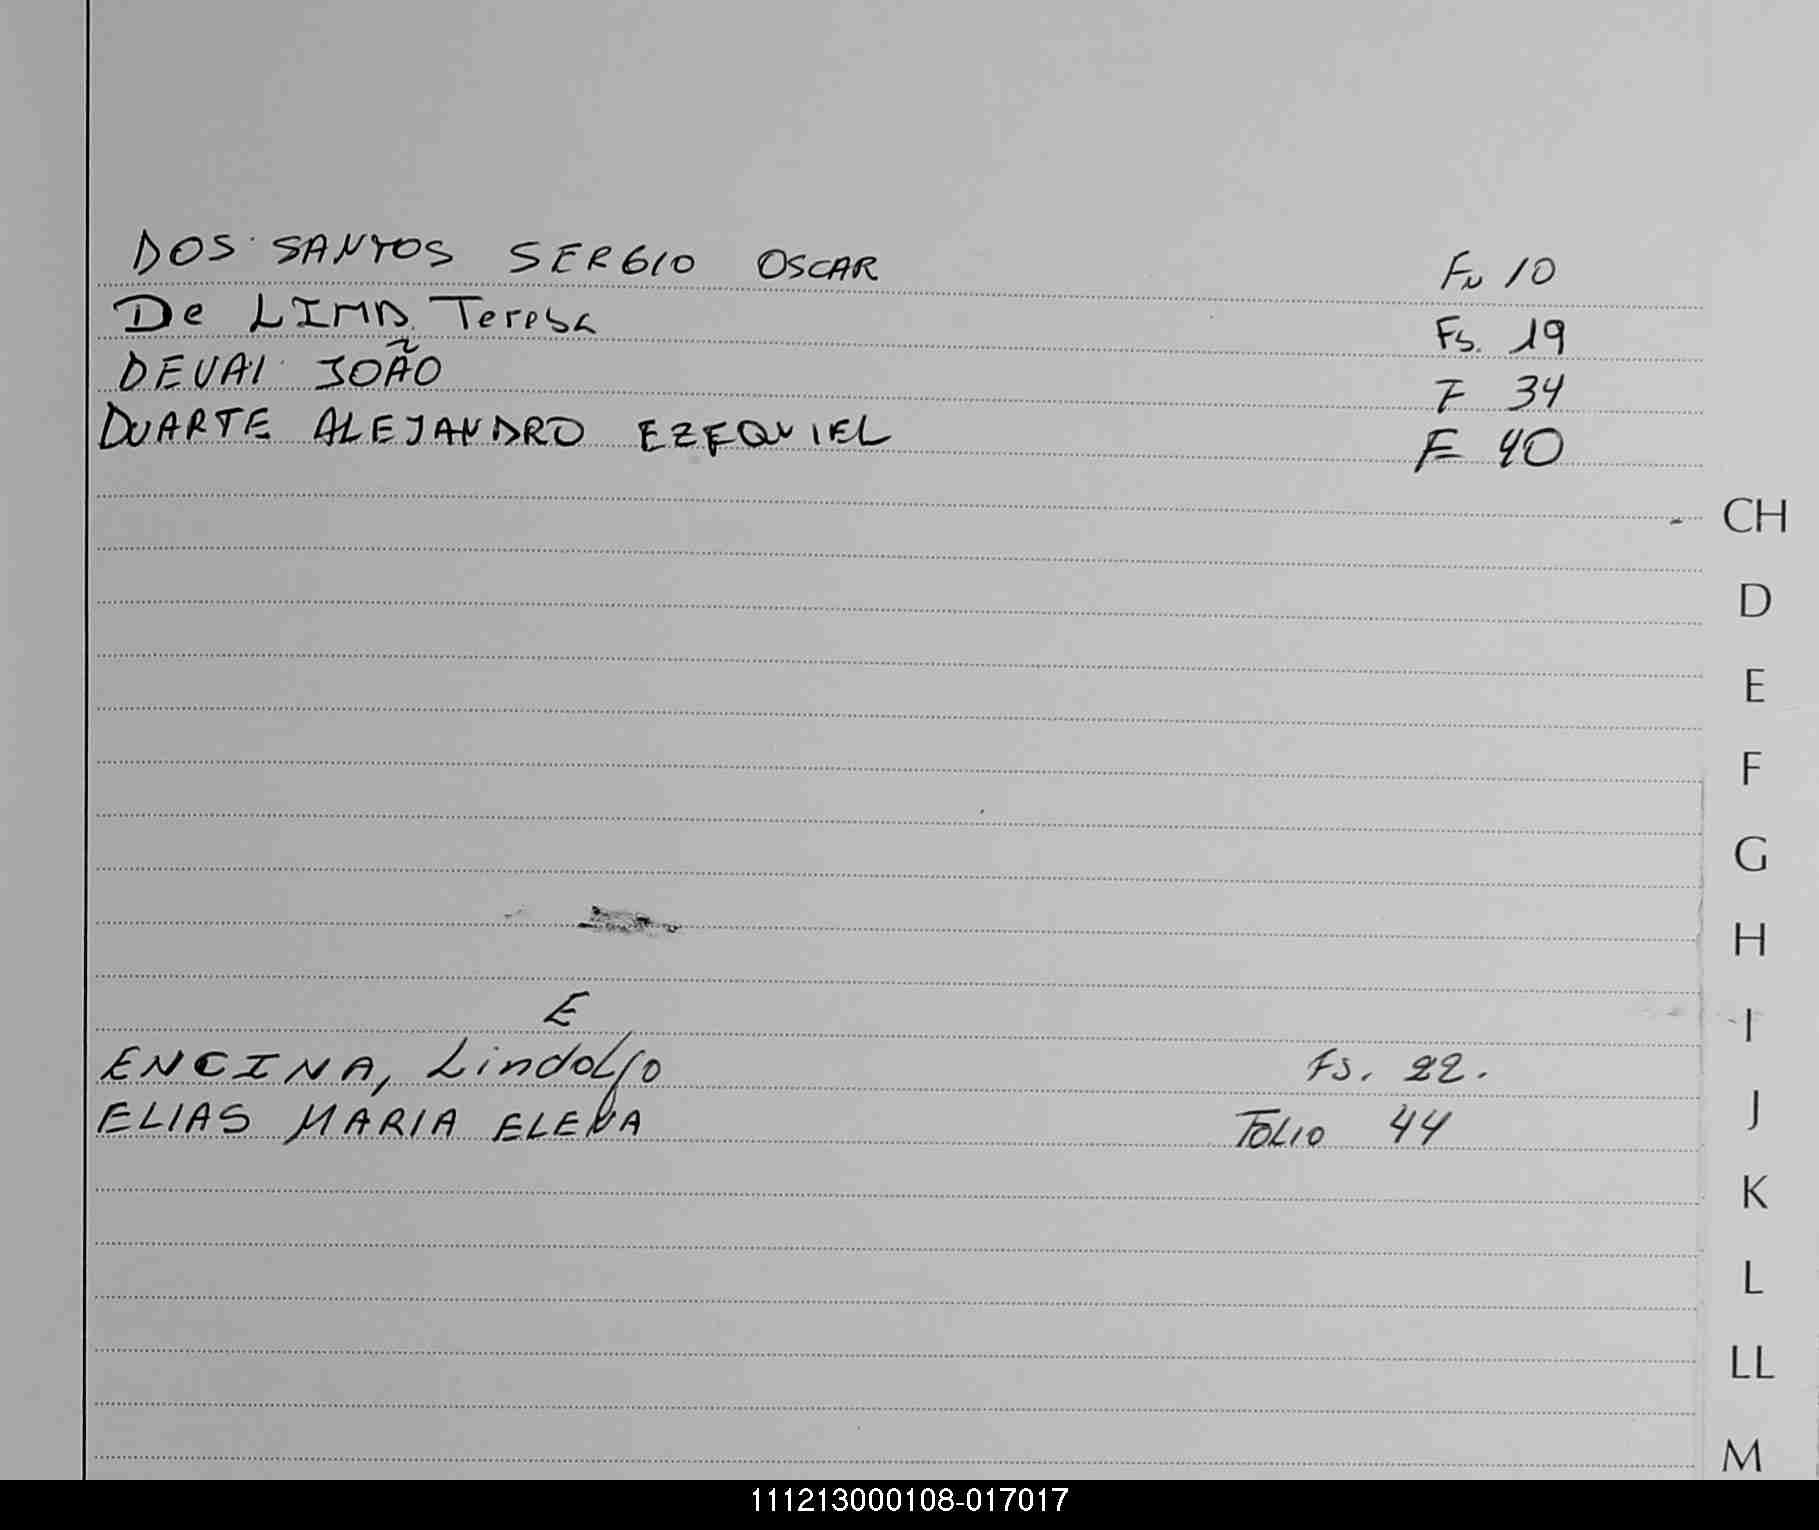 DOS SANTOS SERGIO OSCAR Fs 10
De LIMA Teresa Fs. 19
DEVAI JOÃO F 34
DUARTE ALEJANDRO EZEQUIEL F 40
CH
D
E
F
G
H
E
I
ENCINA, Lindolfo Fs. 22.
ELIAS MARIA ELENA FOLIO 44
J
K
L
LL
M
111213000108-017017